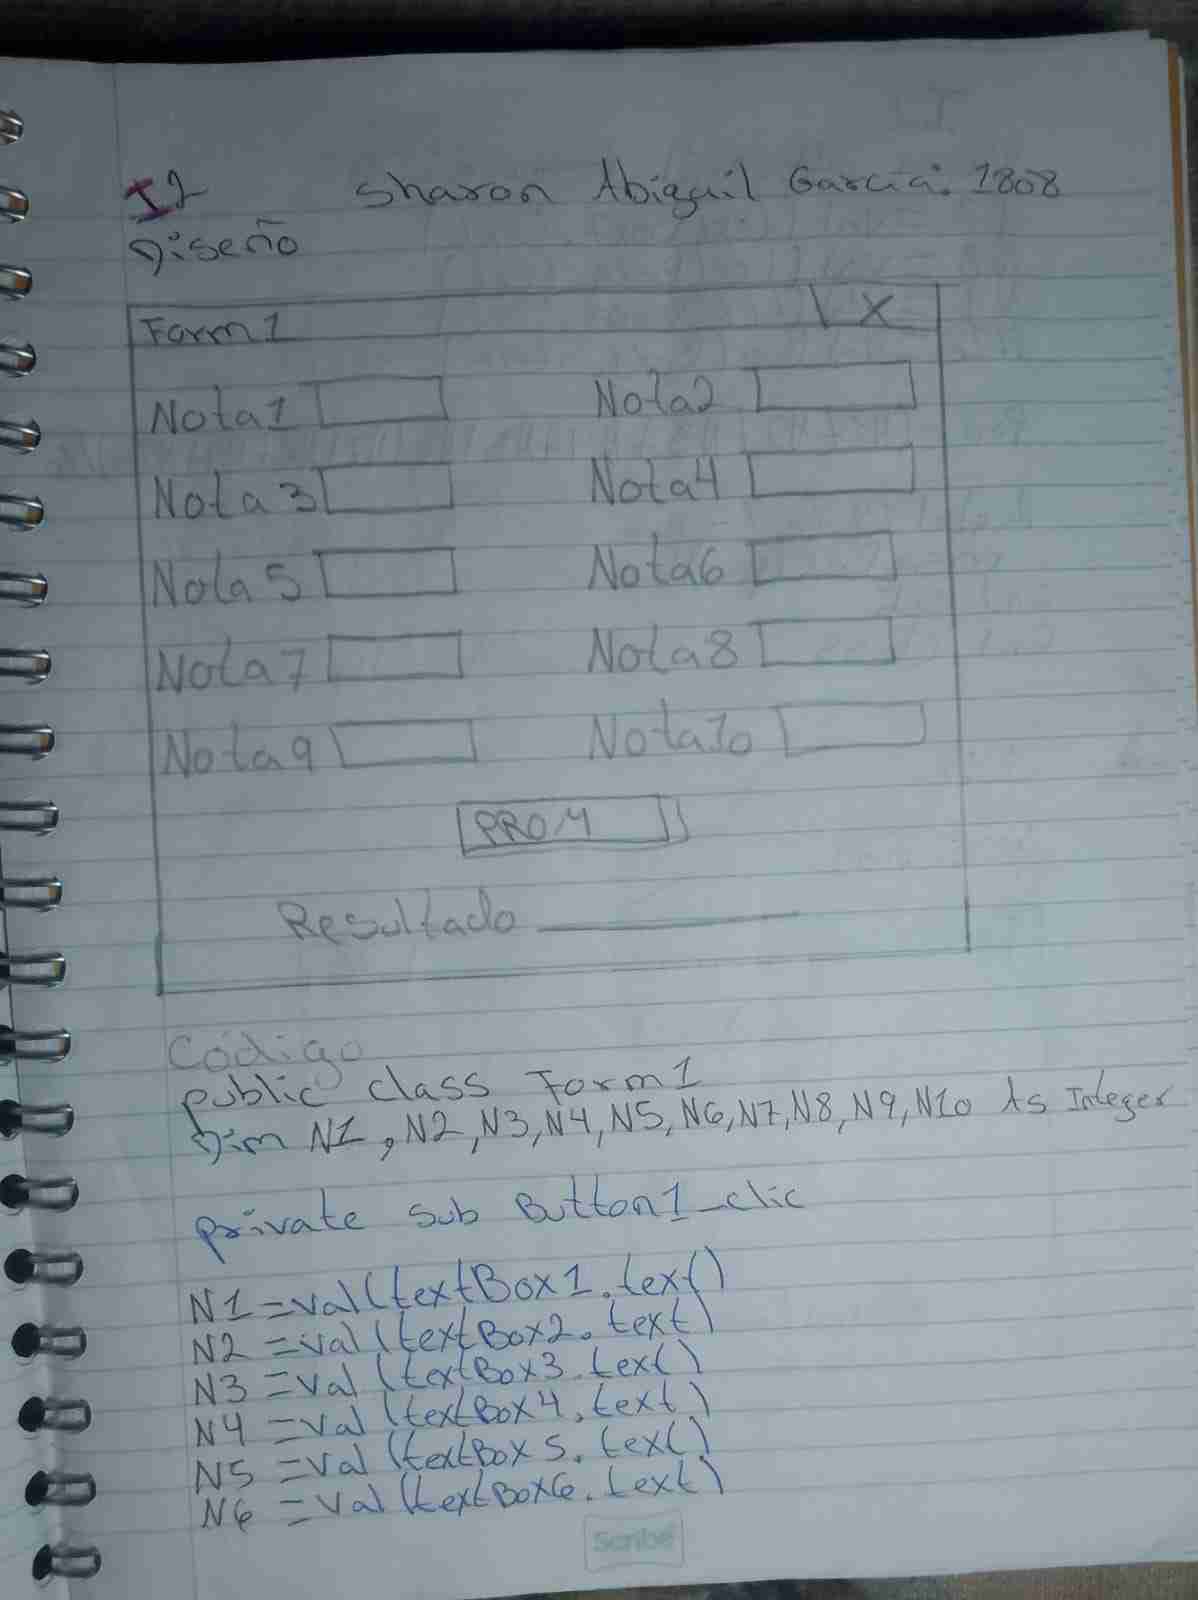 I2 Sharon Abigail Garcia. 1808
Diseño
Form1 \ X
Nota1 Nota2
Nota3 Nota4
Nota5 Nota6
Nota7 Nota8
Nota9 Nota10
PROM
Resultado
Código
public class Form1
Dim N1, N2, N3, N4, N5, N6, N7, N8, N9, N10 As Integer
private sub Button1_clic
N1 = val (textBox1. text)
N2 = val (textBox2. text)
N3 = val (textBox3. text)
N4 = val (textBox4. text)
N5 = val (textBox5. text)
N6 = val (textBox6. text)
Scribe